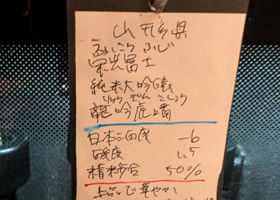 山形県
えいこうふじ
栄光冨士
純米大吟醸
りゅうぎんこしょう
龍吟虎嘯
日本酒度 -6
酸度 1.5
精米歩合 50%
上品で華やか